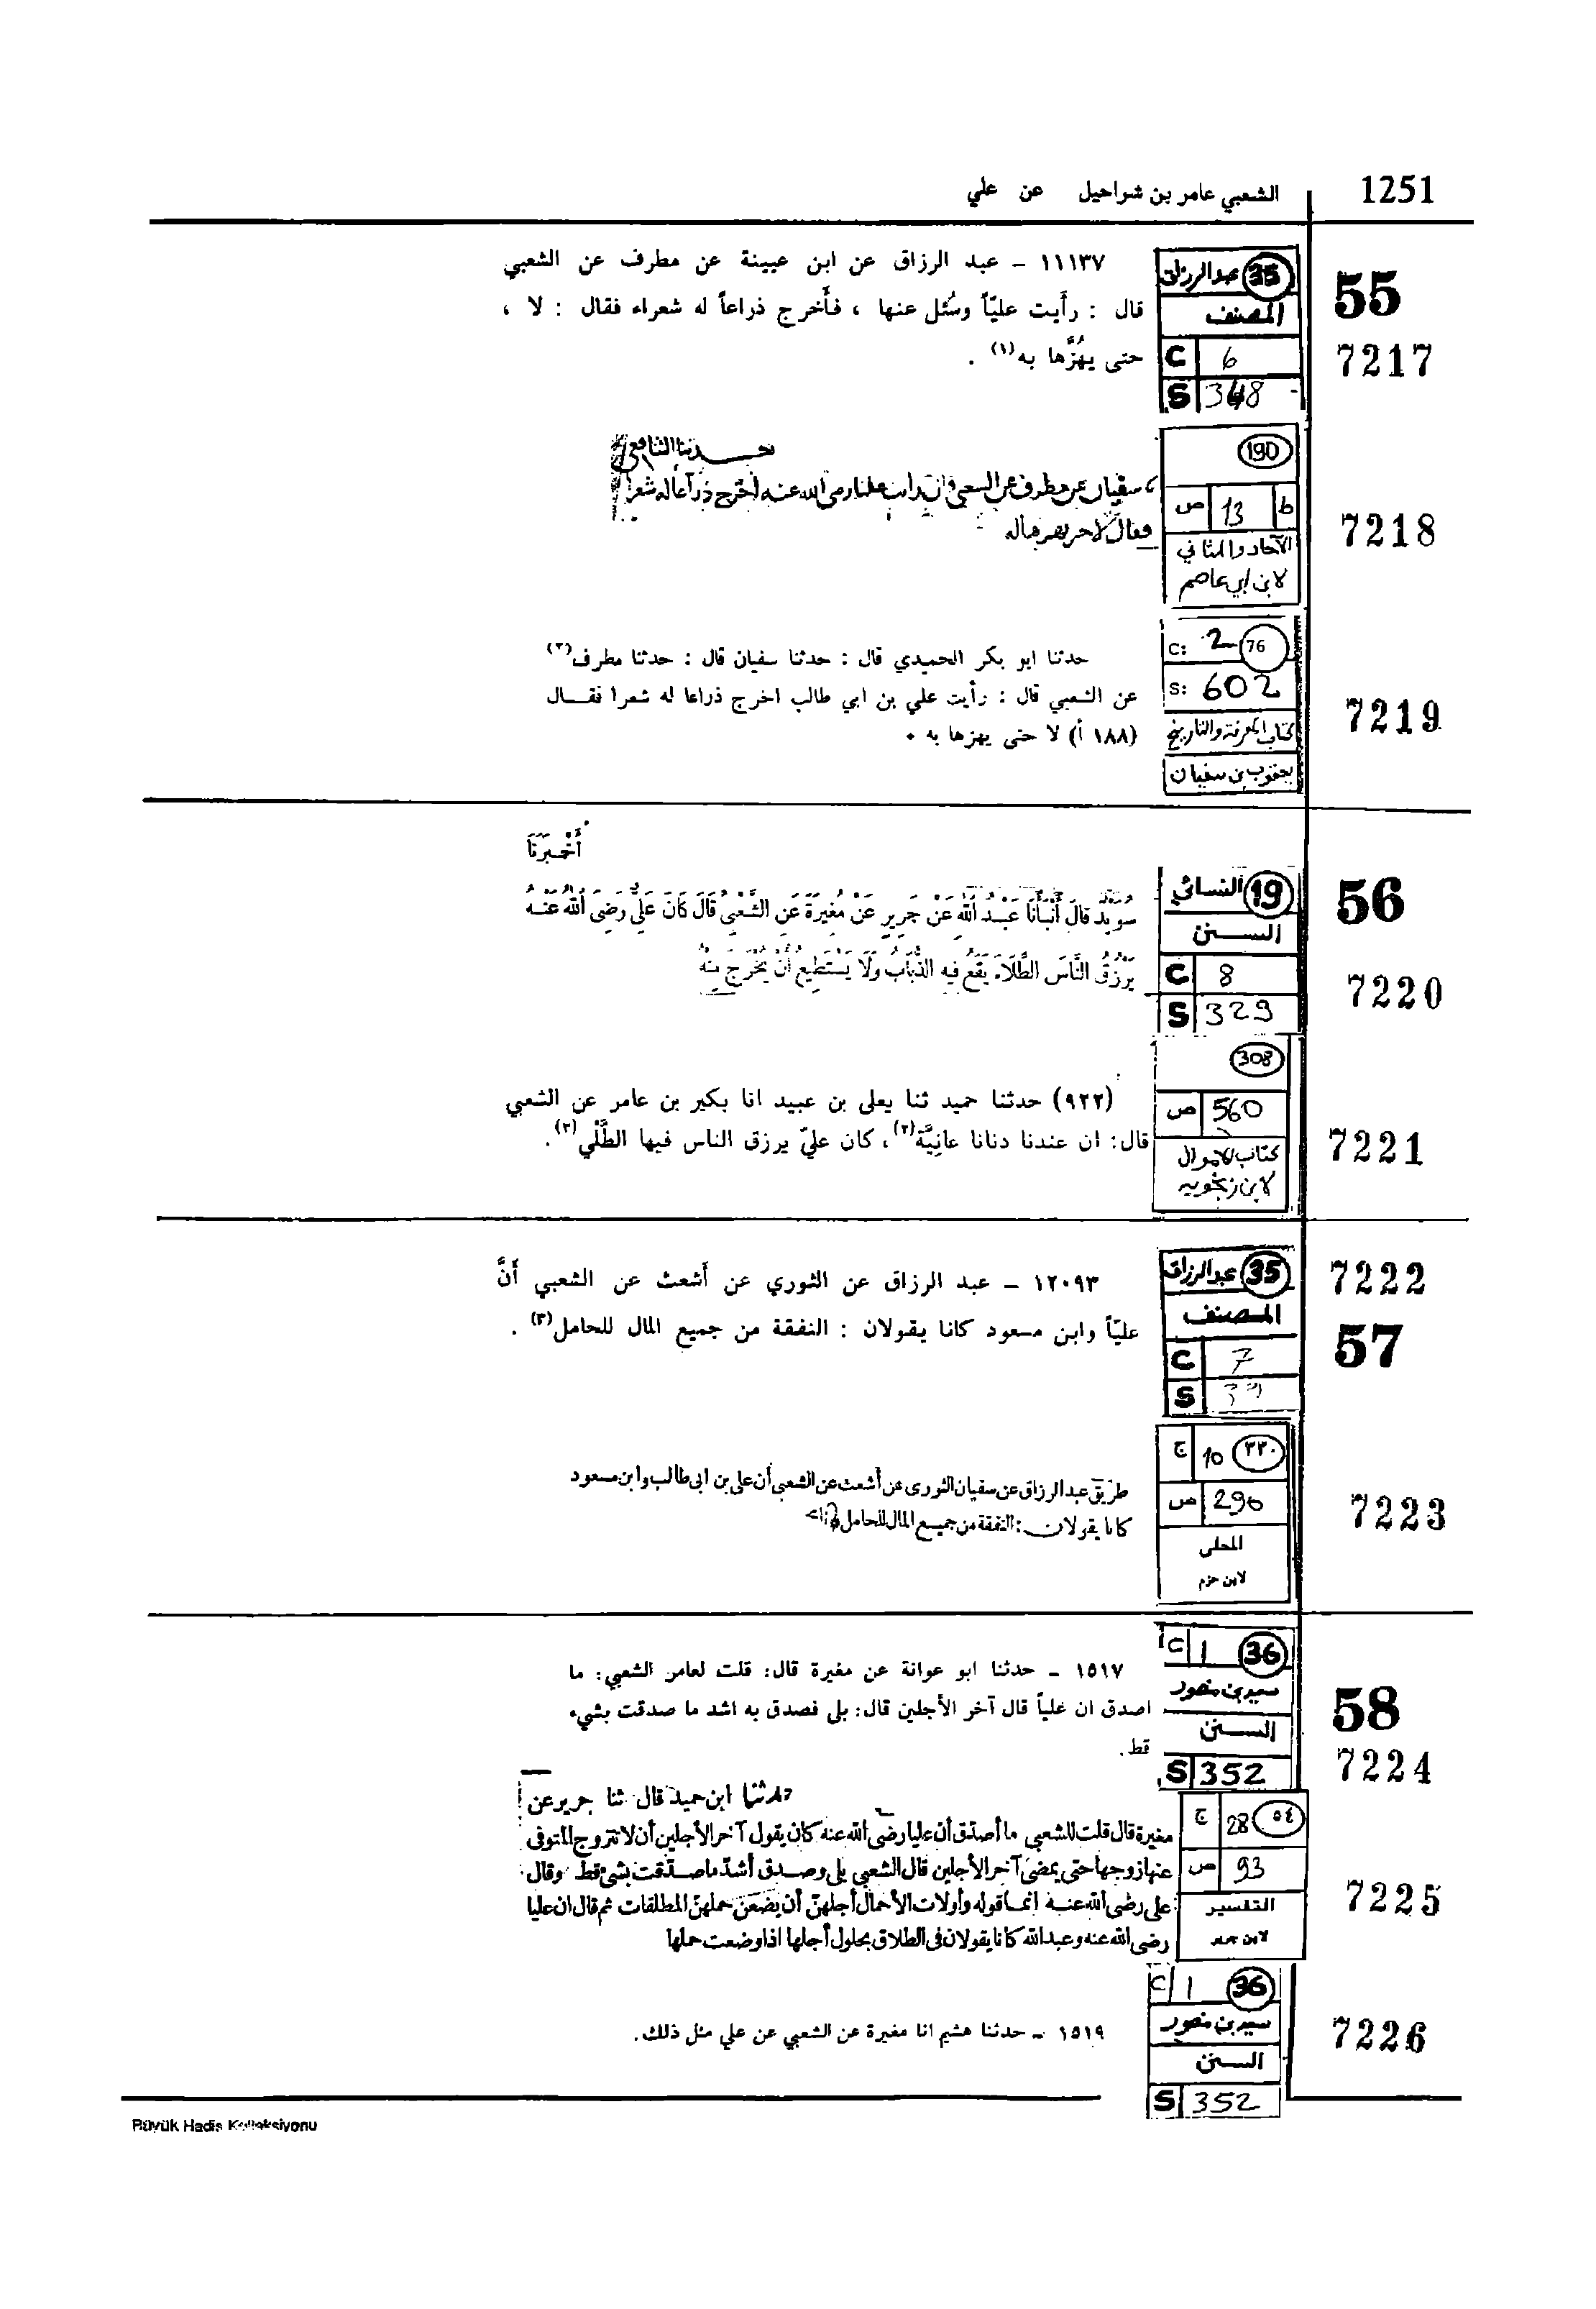 1251
الشعبي عامر بن شراحيل عن علي
55
7217
35 عبد الرزاق
المصنف
C 6
S 348
١١١٣٧ - عبد الرزاق عن ابن عيينة عن مطرف عن الشعبي
قال : رأَيت عليّاً وسُئل عنها ، فأَخرج ذراعاً له شعراء فقال : لا ،
حتى يهُزَّها به(١) .
7218
190
ط 13 ص
الآحاد والمثاني
لابن ابي عاصم
حدثنا الشافعي
سفيان عن مطرف عن الشعبي قال رأيت عليا رضي الله عنه أخرج ذراعا له شعرا
فقال لا حتى يهزها به
7219
76 C: 2
S: 602
كتاب المعرفة والتاريخ
يعقوب بن سفيان
حدثنا ابو بكر الحميدي قال : حدثنا سفيان قال : حدثنا مطرف(٣)
عن الشعبي قال : رأيت علي بن ابي طالب اخرج ذراعا له شعرا فقال
(١٨٨ أ) لا حتى يهزها به .
56
7220
19 النسائي
السنن
C 8
S 329
أَخْبَرَنَا
سُوَيْدٌ قَالَ أَنْبَأَنَا عَبْدُ اللهِ عَنْ جَرِيرٍ عَنْ مُغِيرَةَ عَنِ الشَّعْبِيِّ قَالَ كَانَ عَلِيٌّ رَضِيَ اللهُ عَنْهُ
يَرْزُقُ النَّاسَ الطِّلَاءَ يَقَعُ فِيهِ الذُّبَابُ وَلَا يَسْتَطِيعُ أَنْ يَخْرُجَ مِنْهُ
7221
308
560 ص
كتاب الاموال
لابن زنجويه
(٩٢٢) حدثنا حميد ثنا يعلى بن عبيد انا بكير بن عامر عن الشعبي
قال: ان عندنا دنانا عانِيَّة(٢)، كان عليّ يرزق الناس فيها الطِّلْي(٣).
7222
57
35 عبد الرزاق
المصنف
C 7
S
١٢٠٩٣ - عبد الرزاق عن الثوري عن أَشعث عن الشعبي أَنَّ
عليّاً وابن مسعود كانا يقولان : النفقة من جميع المال للحامل(٣) .
7223
٣٣٠ 10 ج
296 ص
المحلى
لابن حزم
طريق عبد الرزاق عن سفيان الثورى عن أشعث عن الشعبى أن على بن ابى طالب وابن مسعود
كانا يقولان : النفقة من جميع المال للحامل
58
7224
36 C 1
سعيد بن منصور
السنن
S 352
١٥١٧ - حدثنا ابو عوانة عن مغيرة قال: قلت لعامر الشعبي: ما
اصدق ان علياً قال آخر الأجلين قال: بلى فصدق به اشد ما صدقت بشيء
قط.
7225
٥٤ 28 ج
93 ص
التفسير
لابن جرير
حدثنا ابن حميد قال ثنا جرير عن
مغيرة قال قلت للشعبي ما أصدّق أن عليا رضى الله عنه كان يقول آخر الأجلين أن لا تتزوج المتوفى
عنها زوجها حتى يمضى آخر الأجلين قال الشعبي بلى وصدق أشدّ ما صدّقت بشئ قط وقال
على رضى الله عنه انما قوله وأولات الأحمال أجلهنّ أن يضعن حملهنّ المطلقات ثم قال ان عليا
رضى الله عنه وعبد الله كانا يقولان فى الطلاق بحلول أجلها اذا وضعت حملها
7226
36 C 1
سعيد بن منصور
السنن
S 352
١٥١٩ - حدثنا هشيم انا مغيرة عن الشعبي عن علي مثل ذلك.
Büyük Hadis Kolleksiyonu